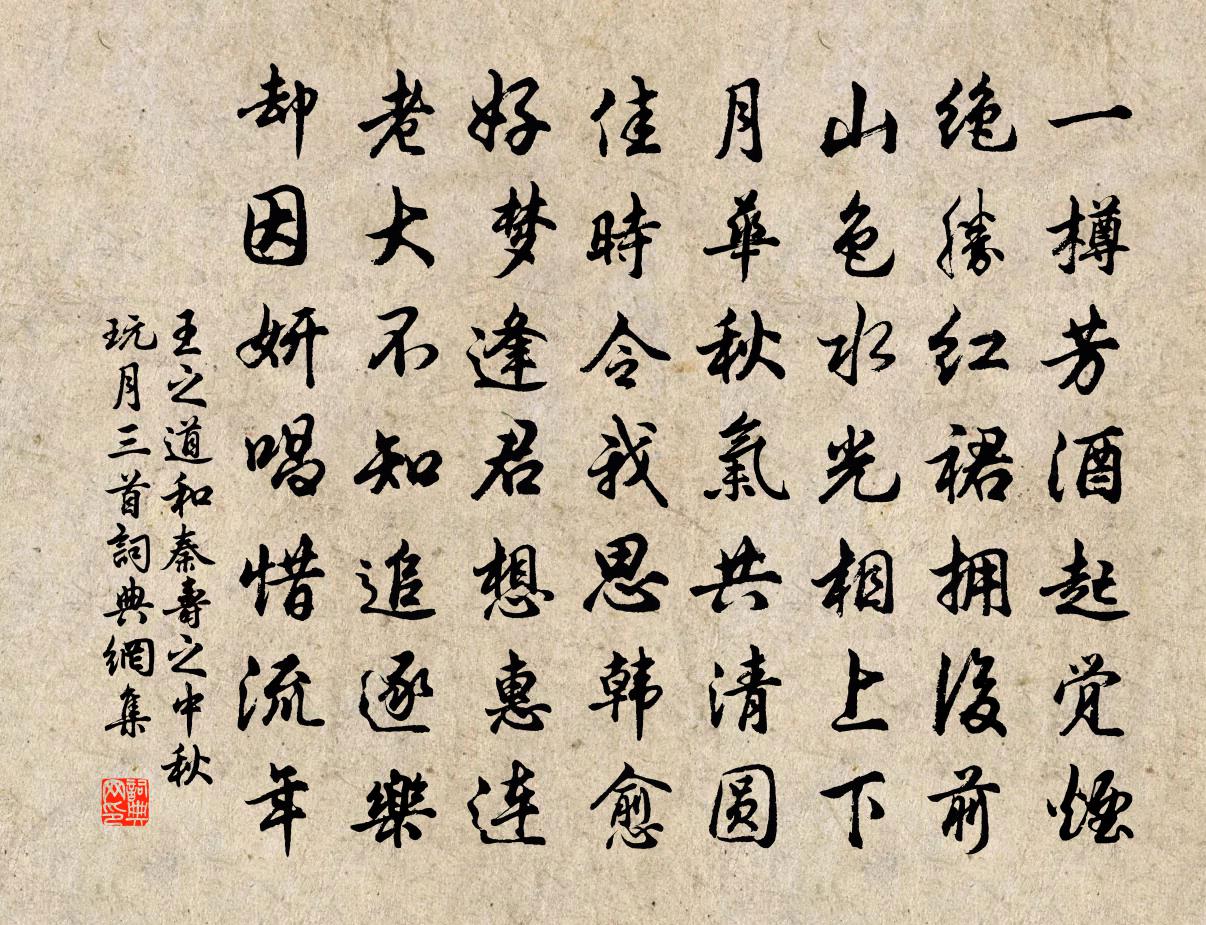 一樽芳酒起觉煙
绝勝红裙拥後前
山色水光相上下
月華秋氣共清圆
佳時令我思韩愈
好梦逢君想惠连
老大不知追逐樂
却因妍唱惜流年
王之道和秦壽之中秋
玩月三首詞典網集
詞典网印